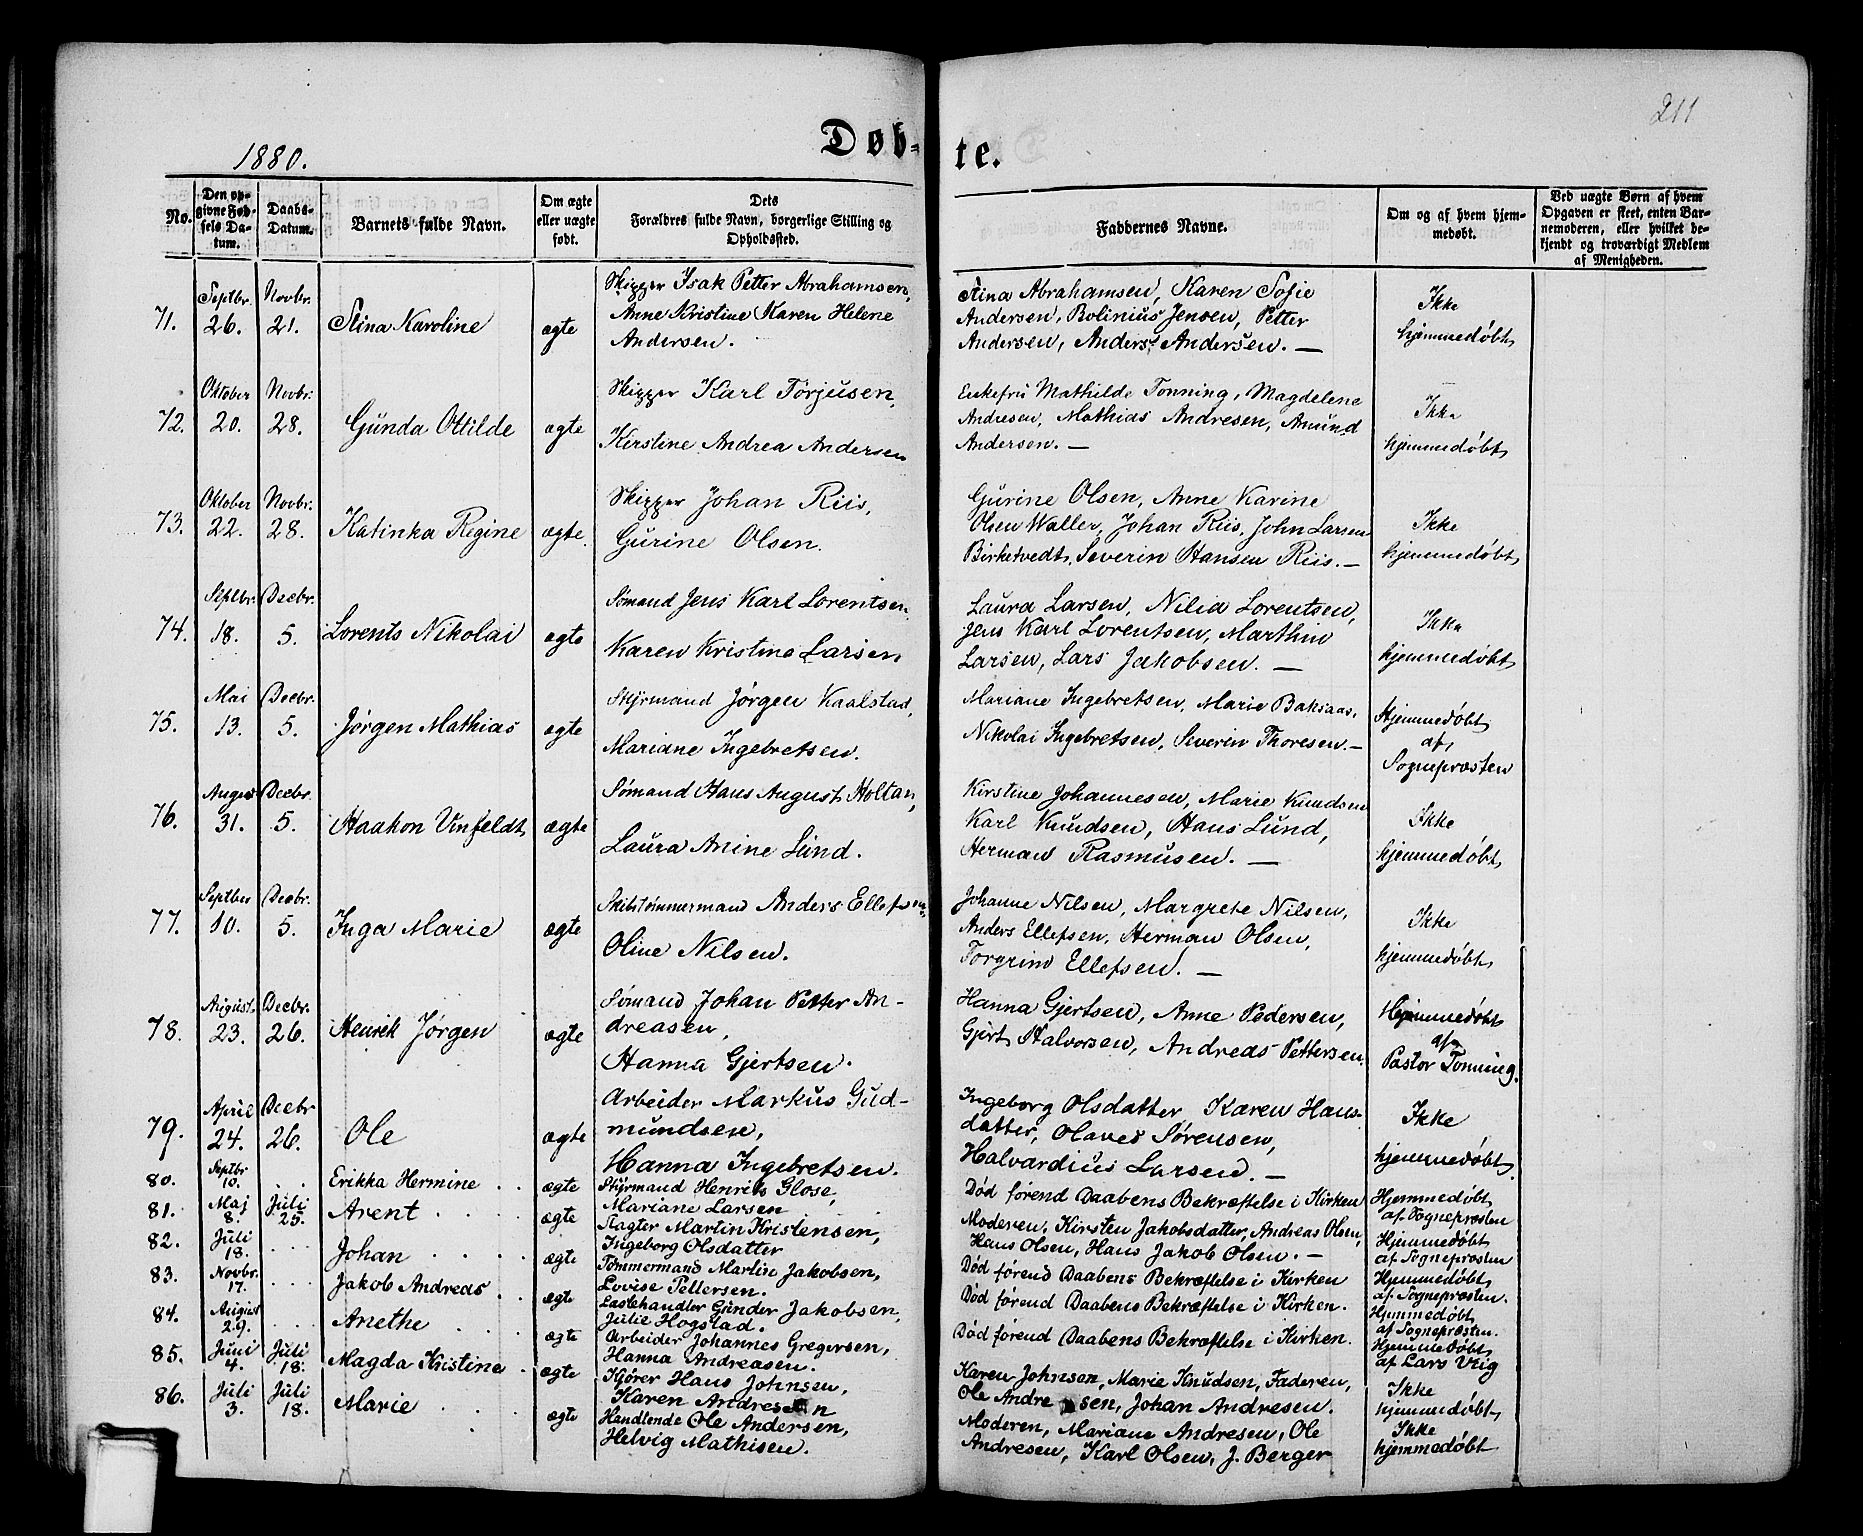 211
1880.
Døb-
te.
No.
Den op-
givne Fød-
sels Da-
tum.
Daabs-
Datum.
Barnets fulde Navn.
Om ægte
eller uægte
født.
Dets
Forældres fulde Navn, borgerlige Stilling og
Opholdssted.
Faddernes Navne.
Om og af hvem hjem-
medøbt.
Ved uægte Børn af hvem
Opgaven er skeet, enten Bar-
nemoderen, eller hvilket be-
kjendt og troværdigt Medlem
af Menigheden.
71.
Septbr.
26.
Novbr.
21.
Stina Karoline
ægte
Skipper Isak Petter Abrahamsen,
Anne Kristine Karen Helene
Andersen.
Stina Abrahamsen, Karen Sofie
Andersen, Bolinius Jensen, Petter
Andersen, Anders Andersen. —
Ikke
hjemmedøbt
72.
Oktober
20.
Novbr.
28.
Gunda Ottilde
ægte
Skipper Karl Torjusen,
Kirstine Andrea Andersen
Enkefru Mathilde Tonning, Magdelene
Andresen, Mathias Andresen, Amund
Andersen. —
Ikke
hjemmedøbt
73.
Oktober
22.
Novbr.
28.
Katinka Regine
ægte.
Skipper Johan Riis,
Gurine Olsen.
Gurine Olsen, Anne Karine
Olsen Waller, Johan Riis, John Larsen
Birketvedt, Severin Hansen Riis. —
Ikke
hjemmedøbt
74.
Septbr.
18.
Decbr.
5.
Lorents Nikolai
ægte
Sømand Jens Karl Lorentsen
Karen Kristine Larsen
Laura Larsen, Nilia Lorentsen,
Jens Karl Lorentsen, Marthin
Larsen, Lars Jakobsen. —
Ikke
hjemmedøbt
75.
Mai
13.
Decbr.
5.
Jørgen Mathias
ægte
Styrmand Jørgen Kaalstad,
Mariane Ingebretsen.
Mariane Ingebretsen, Marie Baksaas,
Nikolai Ingebretsen, Severin Thoresen. —
Hjemmedøbt
af
Sognepræsten
76.
August
31.
Decbr.
5.
Haakon Vinfeldt
ægte
Sømand Hans August Holtan,
Laura Anine Lund.
Kirstine Johannesen, Marie Knudsen
Karl Knudsen, Hans Lund,
Herman Rasmusen. —
Ikke
hjemmedøbt
77.
Septber
10.
Decbr.
5.
Inga Marie
ægte
Skibstømmermand Anders Ellefsen,
Oline Nilsen.
Johanne Nilsen, Margrete Nilsen,
Anders Ellefsen, Herman Olsen,
Torgrim Ellefsen. —
Ikke
hjemmedøbt
78.
August
23.
Decbr.
26.
Henrik Jørgen
ægte
Sømand Johan Petter An-
dreasen,
Hanna Gjertsen.
Hanna Gjertsen, Anne Pedersen,
Gjert Halvorsen, Andreas Pettersen
Hjemmedøbt
af
Pastor Tonning.
79.
April
24.
Decbr
26.
Ole
ægte
Arbeider Markus Gud-
mundsen,
Hanna Ingebretsen.
Ingeborg Olsdatter, Karen Hans-
datter, Olaves Sørensen,
Halvardius Larsen. —
Ikke
hjemmedøbt
80.
Septbr
10.
. .
Erikka Hermine . .
ægte
Styrmand Henrik Glose,
Mariane Larsen
Død førend Daabens Bekræftelse i Kirken
Hjemmedøbt
af Sognepræsten
81.
Maj
8.
Juli
25.
Arent . . . .
ægte
Slagter Martin Kristensen,
Ingeborg Olsdatter
Moderen, Kirsten Jakobsdatter, Andreas Olsen,
Hans Olsen, Hans Jakob Olsen. —
Hjemmedøbt
af Sognepræsten
82.
Juli
18.
. . .
Johan . . . .
ægte
Tømmermand Martin Jakobsen,
Lovise Pettersen.
Død førend Daabens Bekræftelse i Kirken
Hjemmedøbt
af Sognepræsten.
83.
Novbr.
17.
. . .
Jakob Andreas .
ægte
Lastehandler Gunder Jakobsen,
Julie Hogstad.
Død førend Daabens Bekræftelse i Kirken.
Hjemmedøbt
af Sognepræsten.
84.
August
29.
. . .
Anethe . . .
ægte
Arbeider Johannes Gregersen,
Hanna Andreasen.
Død førend Daabens Bekræftelse i Kirken.
Hjemmedøbt
af Lars Vrig
85.
Juni
4.
Juli
18.
Magda Kristine .
ægte
Kjører Hans Johnsen,
Karen Andresen
Karen Johnsen, Marie Knudsen, Faderen,
Ole Andresen, Johan Andresen.
Ikke
hjemmedøbt
86.
Juli
3.
Juli
18.
Marie . . .
ægte
Handlende Ole Andersen,
Helvig Mathisen.
Moderen, Mariane Andresen, Ole
Andresen, Karl Olsen, J. Berger
Ikke
hjemmedøbt